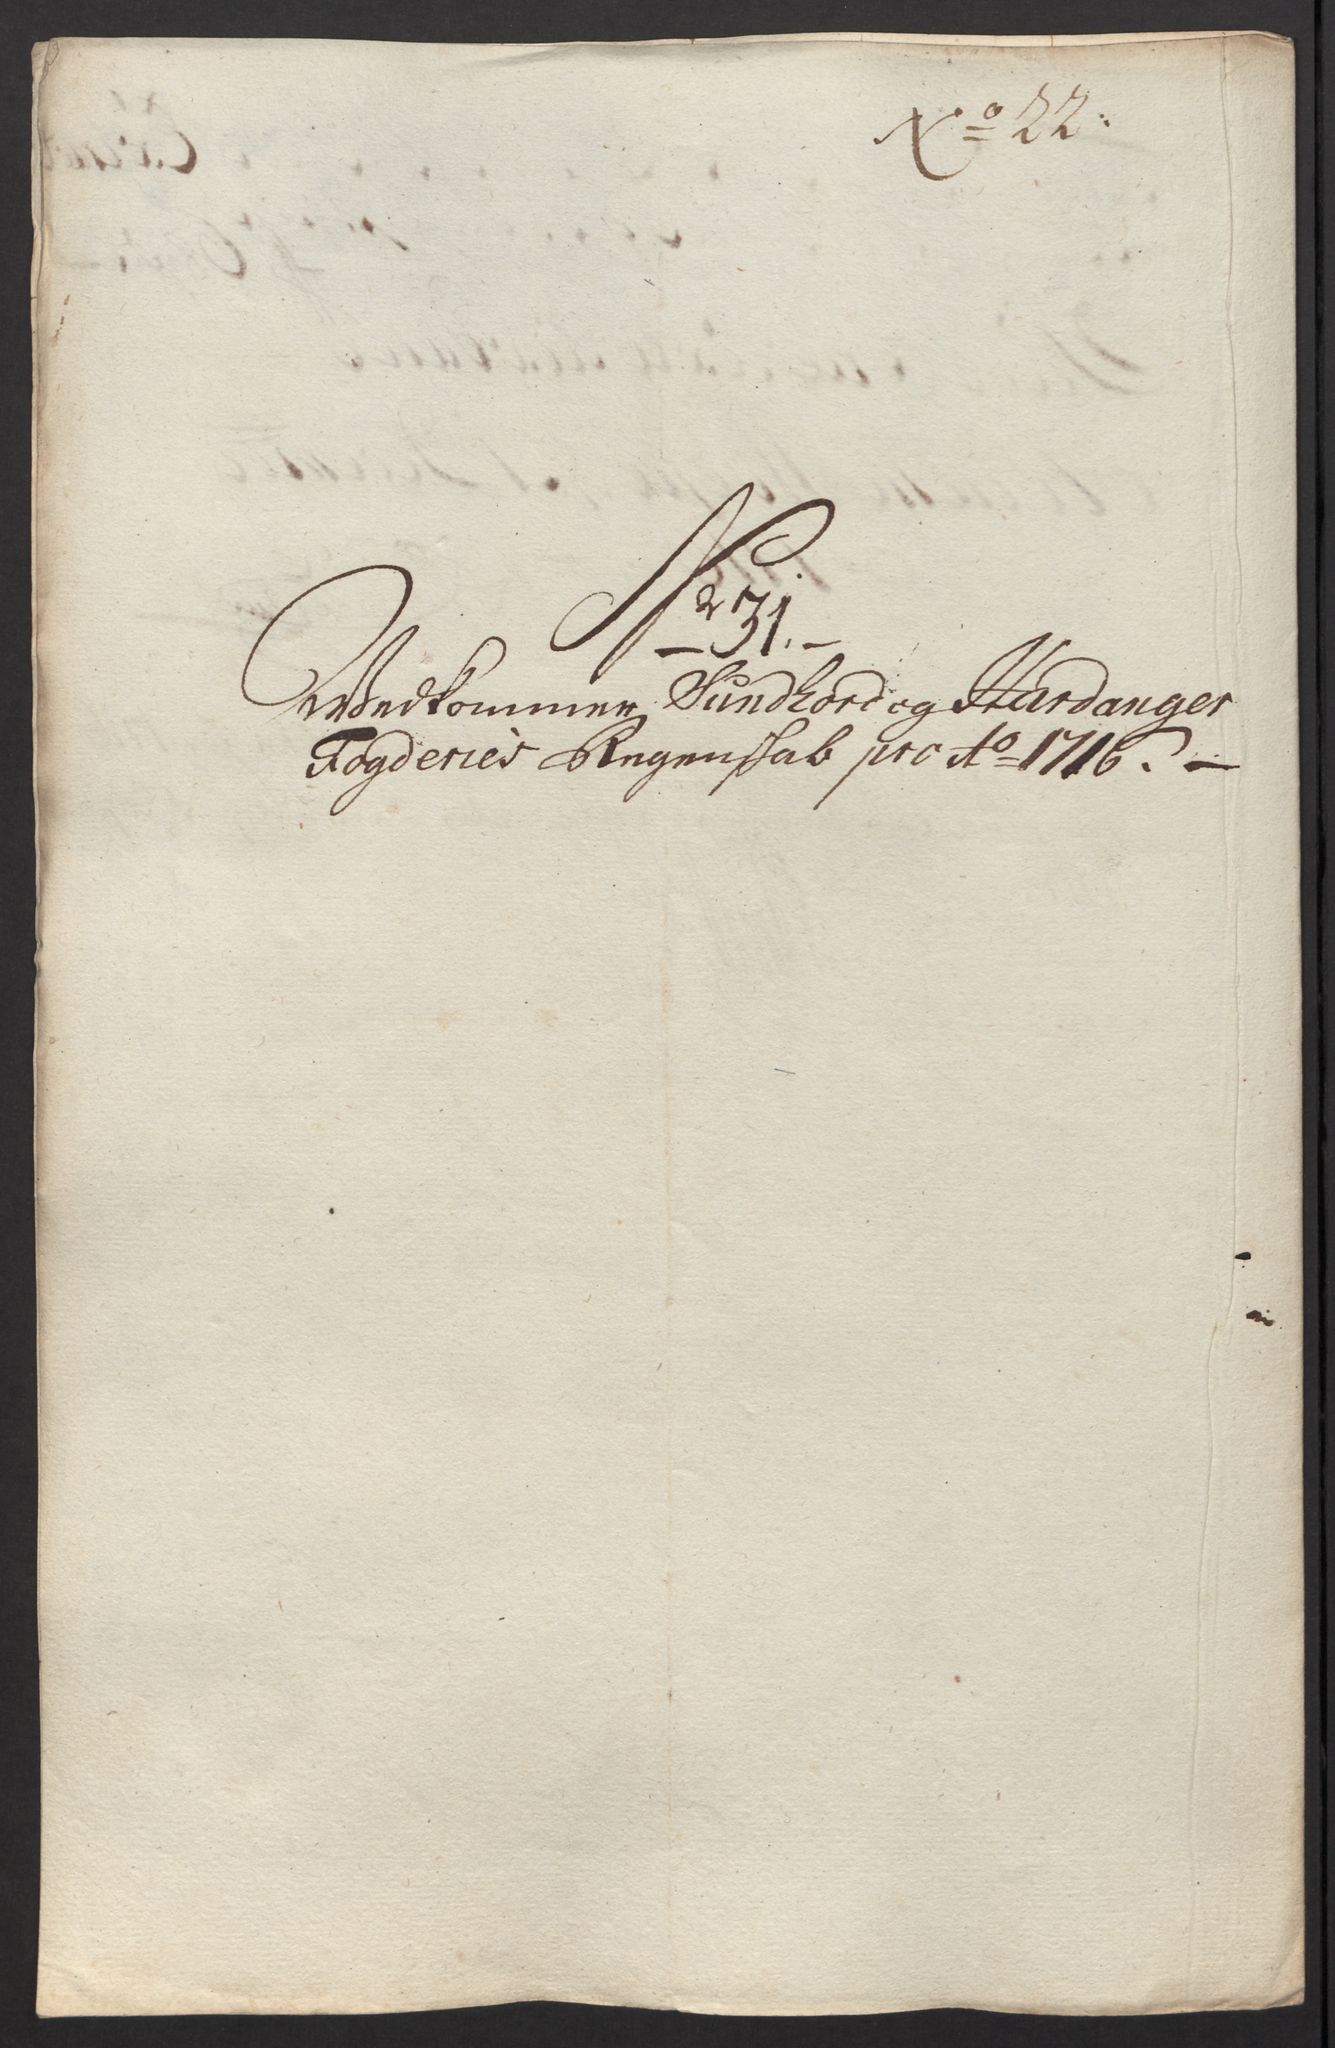 No 22:
No 31.
Wedkommer Sundhord og Hardanger
Fogderies Regenskab pro Ao 1716. –